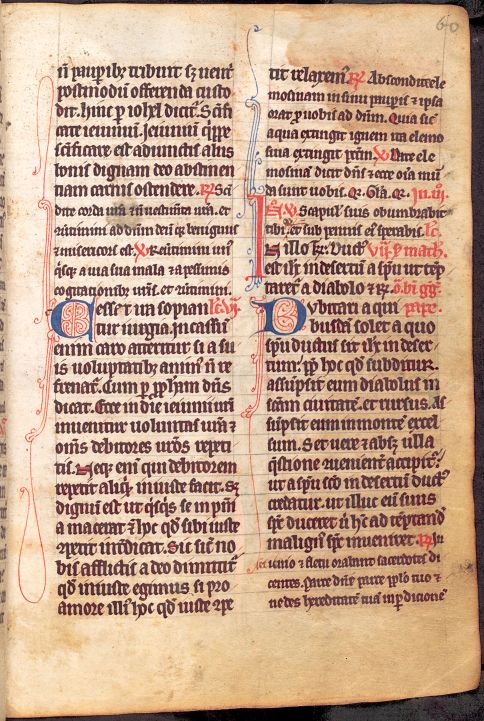 60
n pauperibz tribuit sz uentri
postmodū offerenda custo
dit. hinc p iohel dicit. Sctifi
cate ieiuniū. Ieiuniū qippe
sctificare est adiunctis aliis
bonis dignam deo abstinen
tiam carnis ostendere. R Scin
dite corda urā et n uestimta urā. et
uertimini ad dnm deū qr benignus
et misericors est. V Reuertimini uni
qisqz a uia sua mala et a pessimis
cogitationibz uris. et uertimini.
Cesset un sopiantur lc. vij.
tur iurgia. In cassū
enim caro atteritur si a su
is uoluptatibz animꝰ n re
frenatr. Cum p ppham dns
dicat. Ecce in die ieiunii uri
inuenitur uoluntas urā et
oms debitores uros repeti
tis. Neqz enī qui debitorem
repetit aliqd iniuste facit. Sz
dignū est ut qisqis se in pnia
macerat et hoc qd sibi iuste
cpetit intdicat. Sic sic no
bis afflictis a deo dimittitr
qd iniuste egimus si pro
amore illiꝰ hoc qd iuste cpe
tit relaxemꝰ. R Abscondite ele
mosinam in sinu paupis et ipsa
orat p uobis ad dnm. Quia sic
aqua extingit ignem ita elemo
sina extingit pctm. V Date ele
mosinā dicit dns et ecce oīa mū
da sunt uobis. Qr. Gla. Qr. In. iij.
N. V Scapulis suis obumbrabit
tibi. et sub pennis eiꝰ sperabis. lc.
In illo tr. Ductꝰ vij. s. math.
est ihc in desertū a spu ut tēp
taretr a diabolo et R. o. bi gg.
Dubitari a qui pape.
busdā solet a quo
spu ductus sit ihc in deser
tum. pp hoc qd subditur.
assupsit eum diabolus in
scam ciuitatē. et rursus. As
supsit eum in montē excel
sum. Set uere et absqz ulla
qstione uenienter accipitr.
ut a spu sco in desertū ductꝰ
credatur. ut illuc eū suus
spc duceret u hc ad tēptandū
malignꝰ spc inueniret. R In
ieiunio et fletu orabant sacerdotes di
centes. Parce dne parce pplo tuo et
ne des hereditatē tuā in pditionē